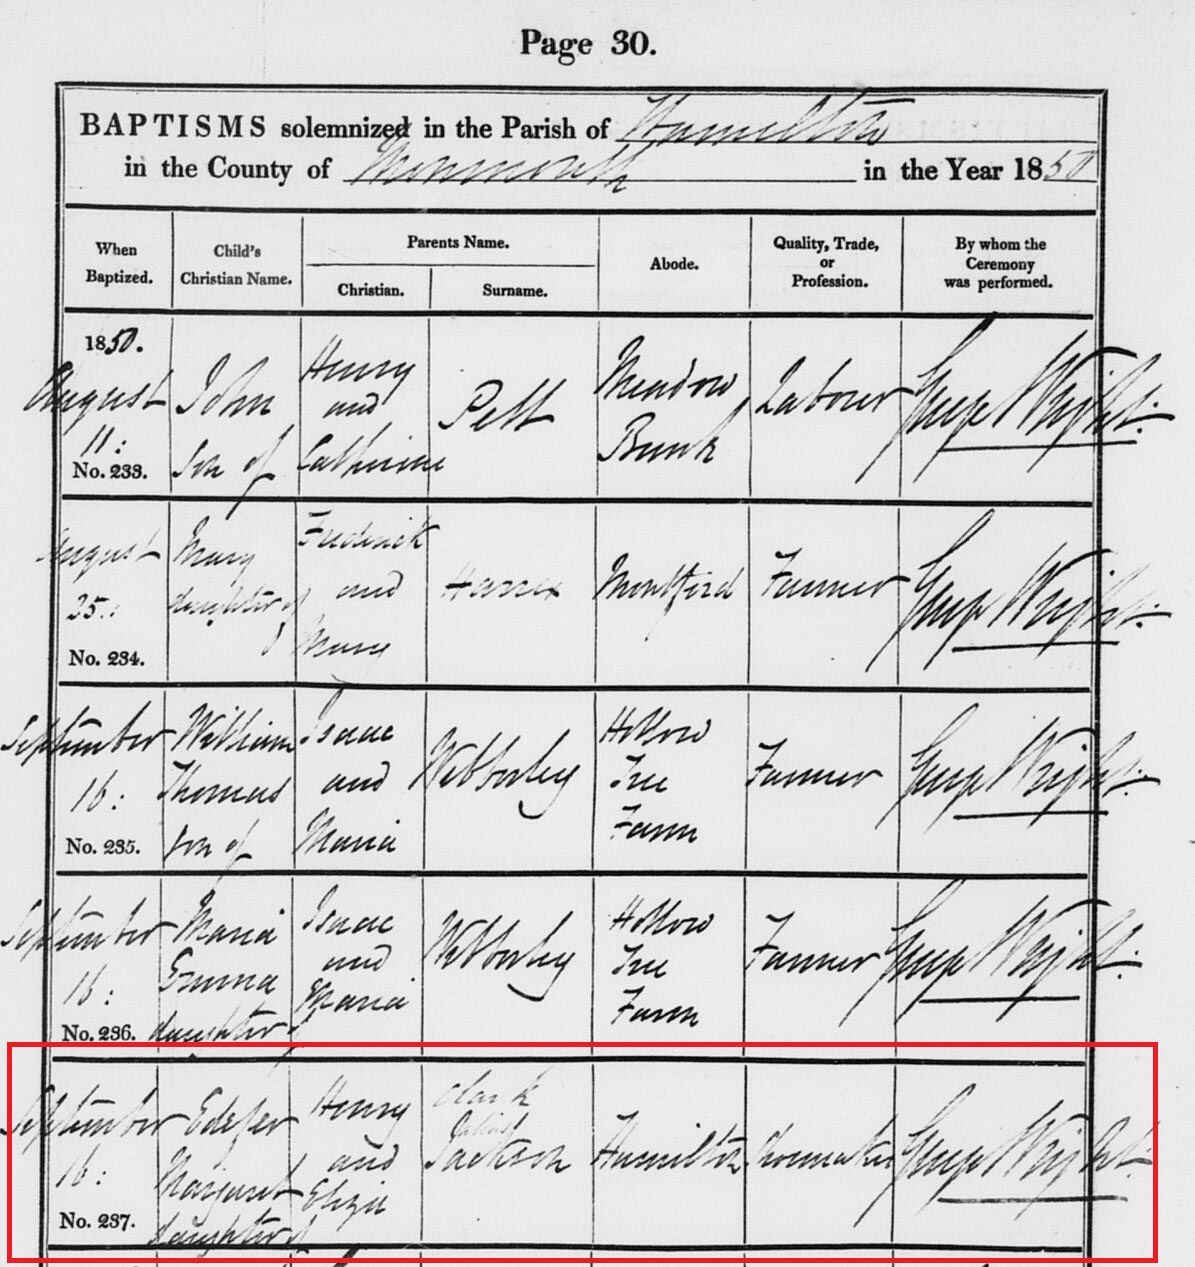 Page 30.
BAPTISMS solemnized in the Parish of Hamilton
in the County of Monmouth in the Year 1850
When Baptized.
Child's Christian Name.
Parents Name.
Christian.
Surname.
Abode.
Quality, Trade, or Profession.
By whom the Ceremony was performed.
1850.
August
11:
No. 233.
John
Son of
Henry
and
Catherine
Pett
Meadow
Bank
Labourer
Wright.
August
25.:
No. 234.
Mary
daughter of
Frederick
and
Mary
Harrex
Montford
Farmer
Wright.
September
16:
No. 235.
William
Thomas
Son of
Isaac
and
Maria
Wibberley
Hollow
Tree
Farm
Farmer
Wright.
September
16:
No. 236.
Maria
Emma
daughter of
Isaac
and
Maria
Wibberley
Hollow
Tree
Farm
Farmer
Wright.
September
16:
No. 237.
Margaret
daughter of
Henry
and
Eliza
Clark
Jackson
Hamilton
Shoemaker
Wright.